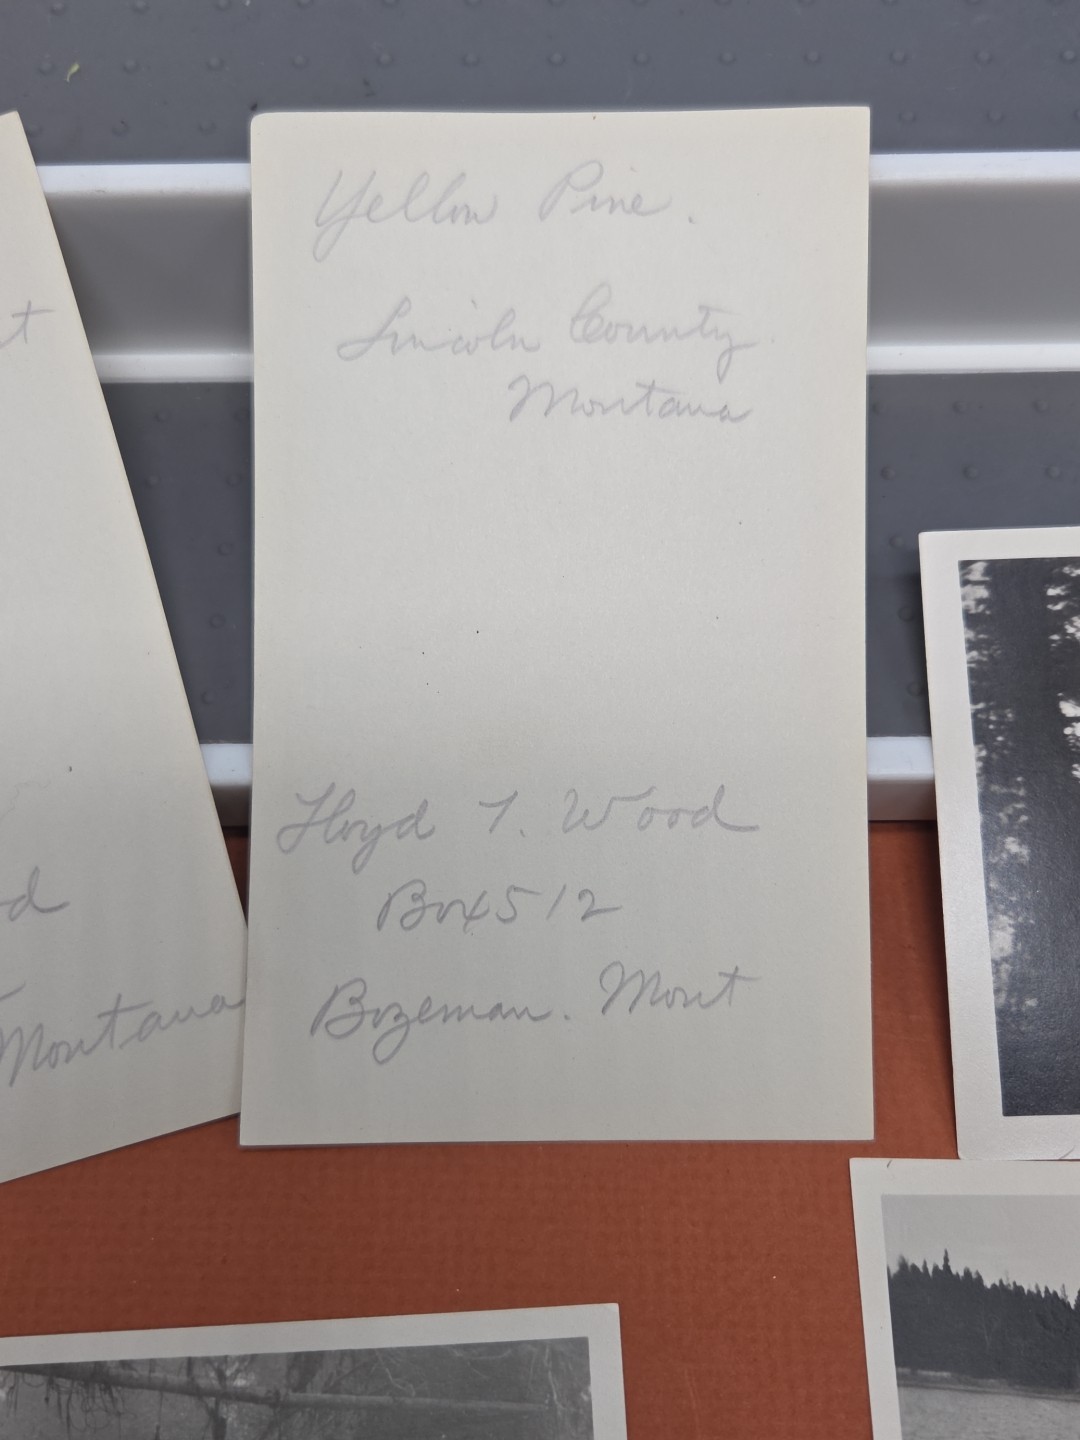 Yellow Pine.
Lincoln County.
Montana
Floyd T. Wood
Box 512
Bozeman. Mont
nt
d
Montana